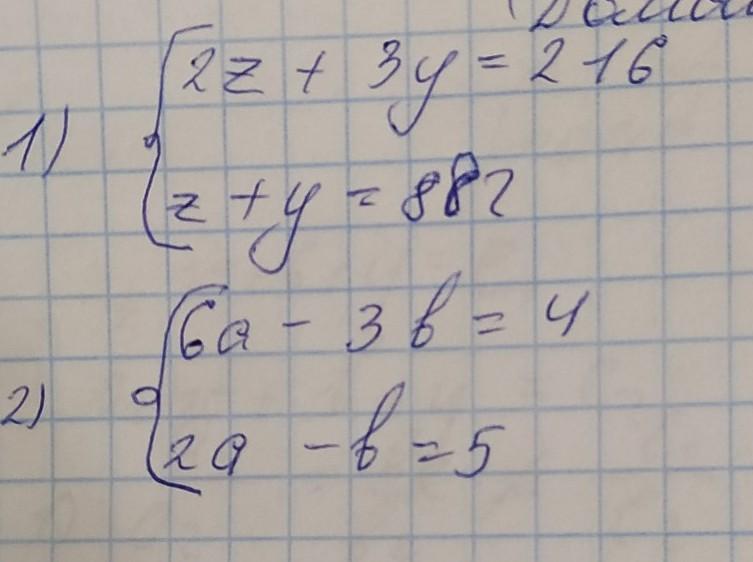 1)
2z + 3y = 216
z + y = 88г
2)
6a - 3b = 4
2a - b = 5